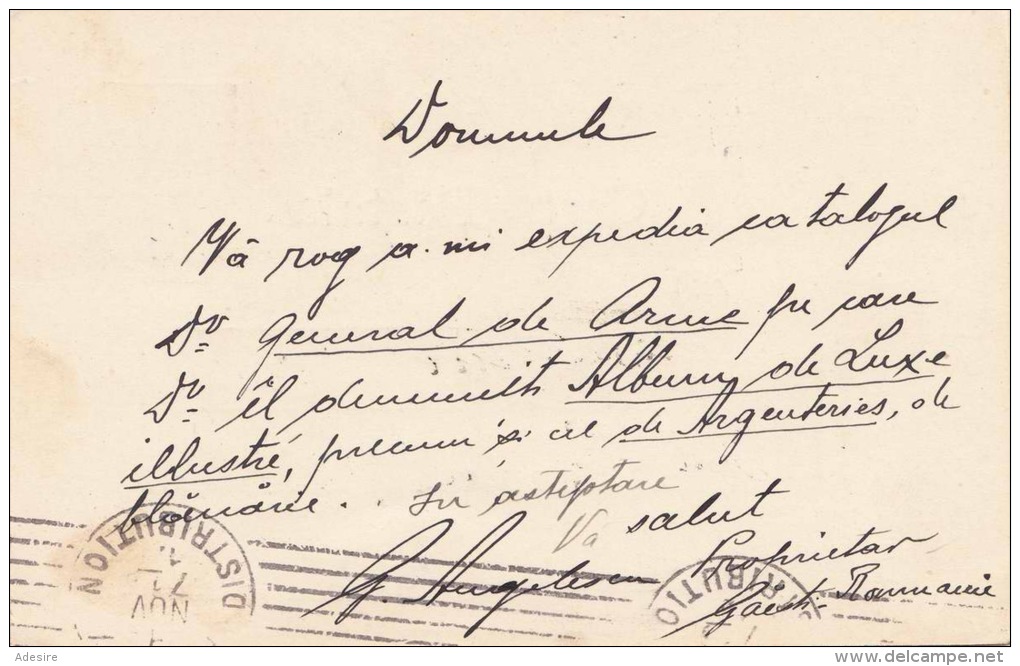 Domnule
Vă rog a-mi expedia catalogul
Dv general de Arme pe care
Dv îl denumiti Album de Luxe
illustré, precum și cel de Argenteries, de
blănărie. În asteptare
Va salut
G. Angelescu Proprietar
Gaesti - Roumanie
DISTRIBUTION
NOV
DISTRIBUTIO
Adesire
delcampe.net